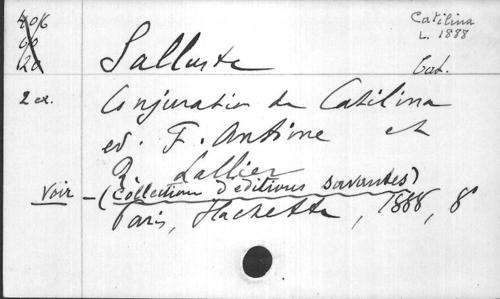 406
90
20
Catilina
L. 1888
Salluste
Cat.
2 ex.
Conjuration de Catilina
ed. F. Antoine et
R. Lallier
Voir - (Collection d'éditions savantes)
Paris, Hachette, 1888, 8°